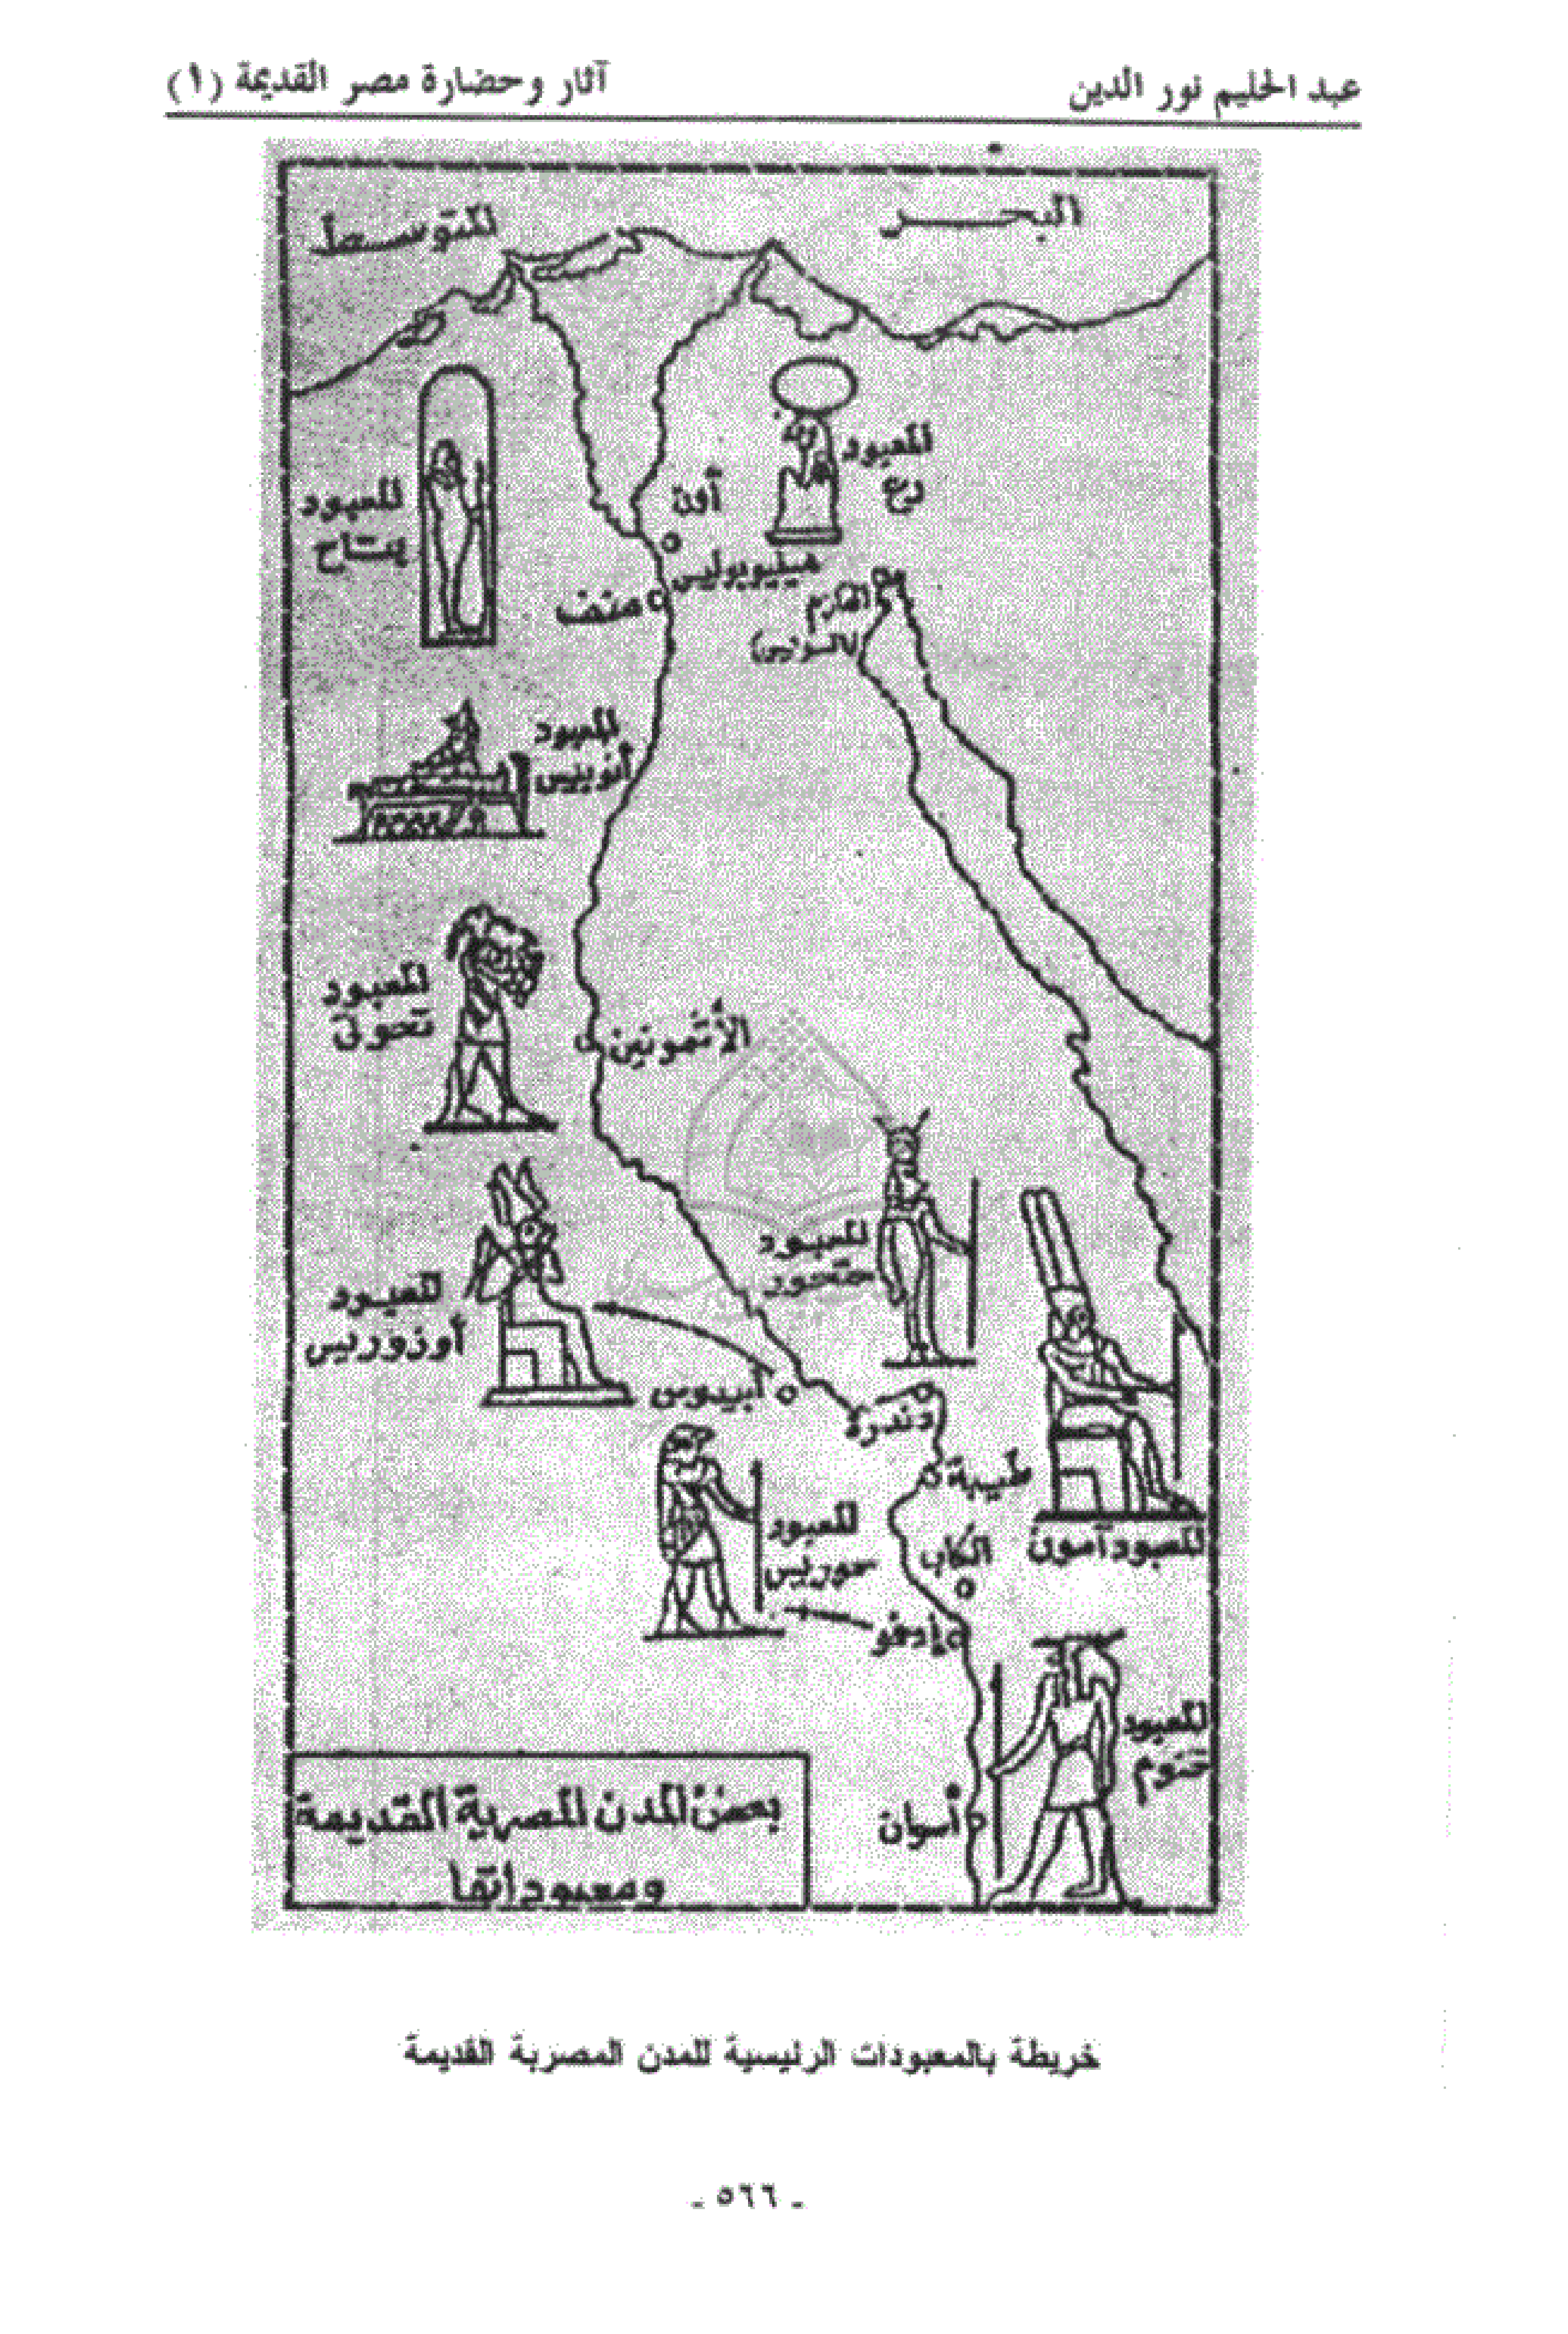 عبد الحليم نور الدين
آثار وحضارة مصر القديمة (١)
البحر
المتوسط
المعبود
رع
أون
هيليوبوليس
المعبود
بتاح
منف
القلزم
(السويس)
المعبود
أنوبيس
المعبود
تحوتى
الأشمونين
المعبود
حتحور
المعبود
أوزوريس
أبيدوس
دندرة
طيبة
المعبود آمون
الكاب
المعبود
حوريس
إدفو
المعبود
خنوم
أسوان
بعض المدن المصرية القديمة
ومعبوداتها
خريطة بالمعبودات الرئيسية للمدن المصرية القديمة
- ٥٦٦ -